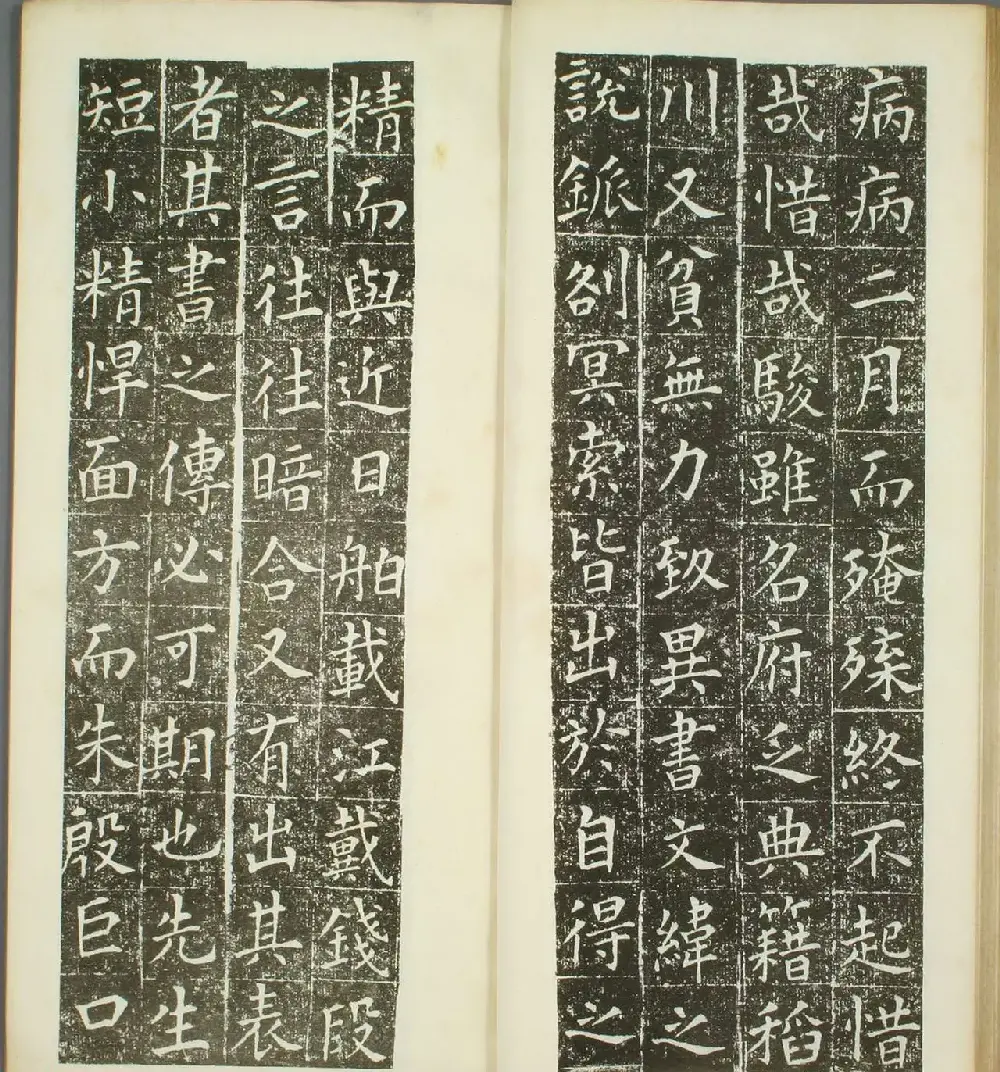 病病二月而殗殜終不起惜
哉惜哉駿雖名府乏典籍稻
川又貧無力致異書文緯之
說鈲劀冥索皆出於自得之
精而與近日船載江戴錢段
之言往往暗合又有出其表
者其書之傳必可期也先生
短小精悍面方而朱殷巨口